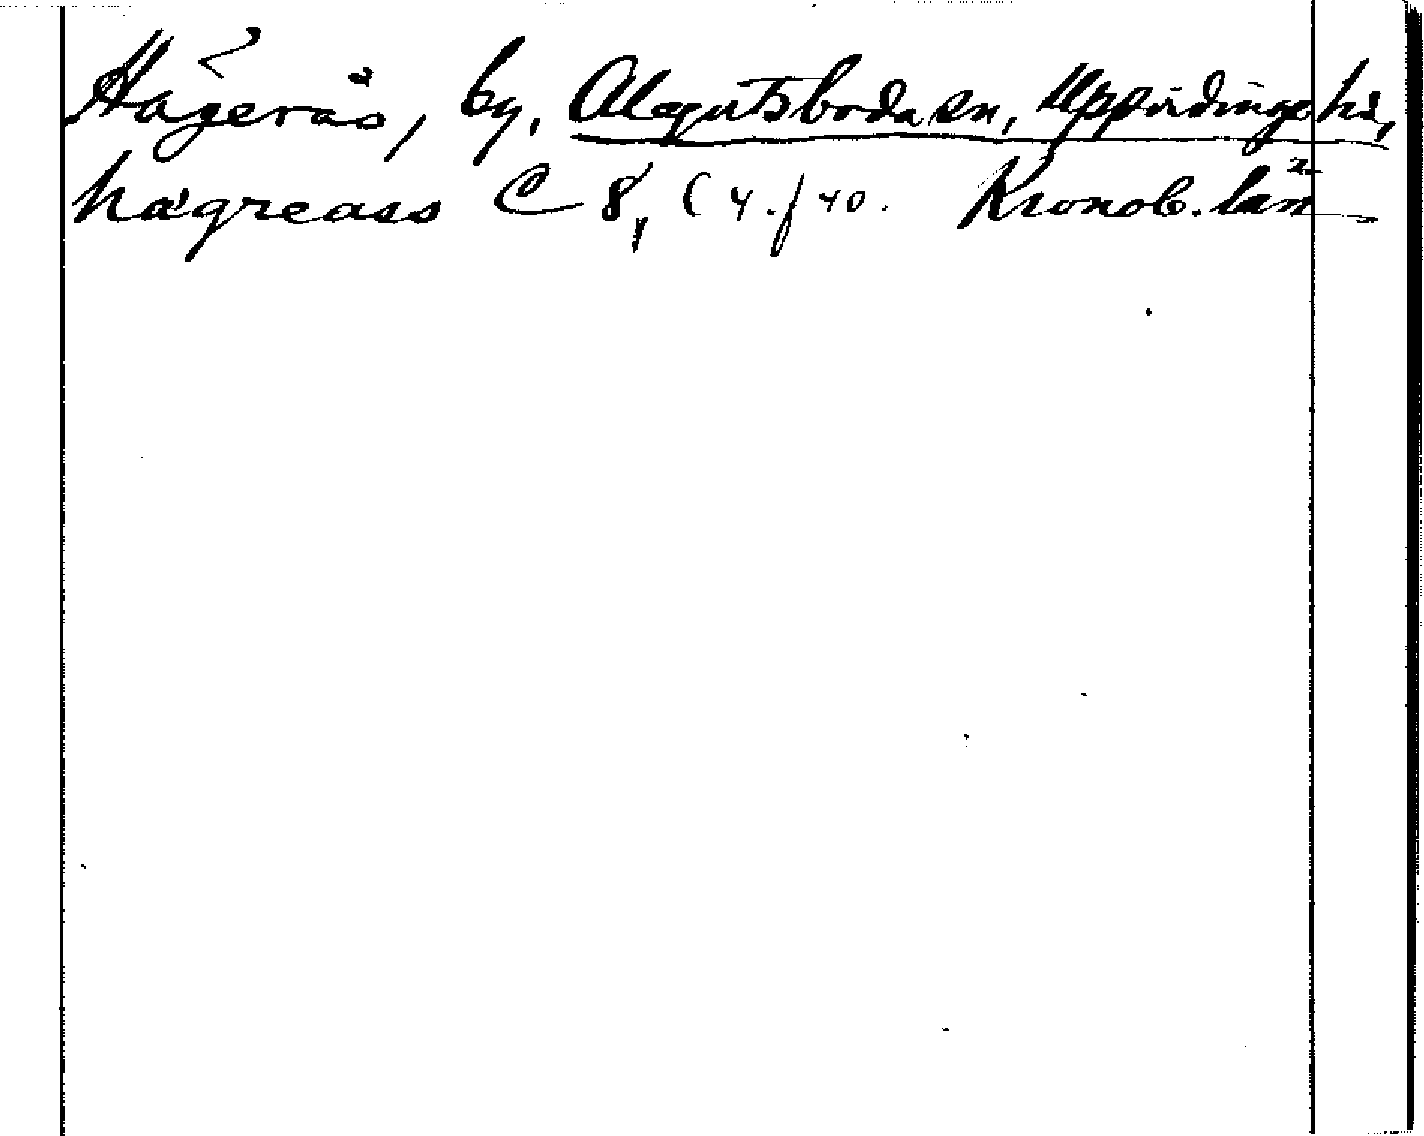 Hägerås, by, Algutsboda sn, Uppvidinge hd,
hägreass C 8, (4./40. Kronob. län